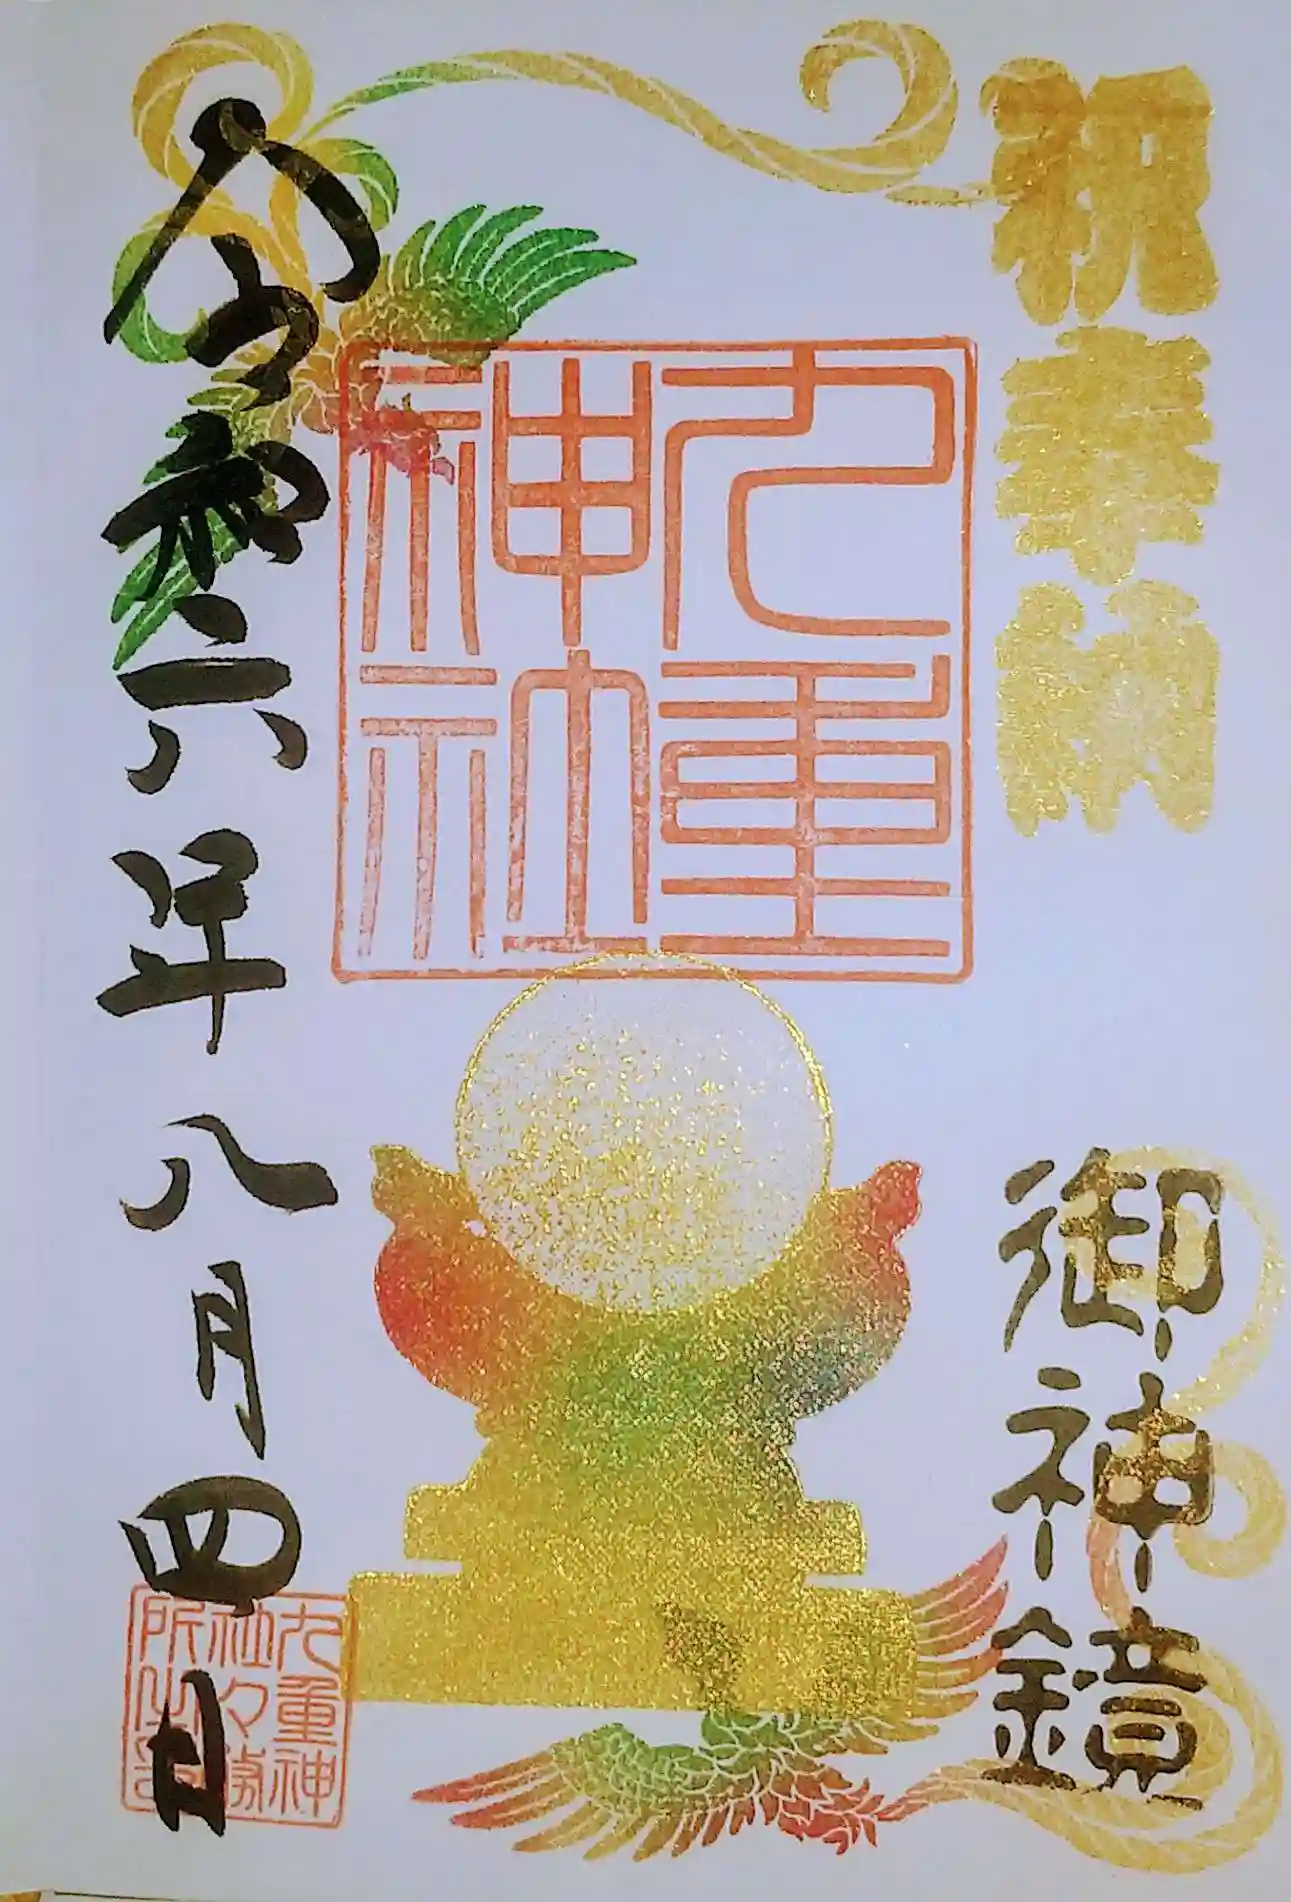 祝奉納
御神鏡
九重
神社
令和六年八月四日
九重神
社々務
所之印